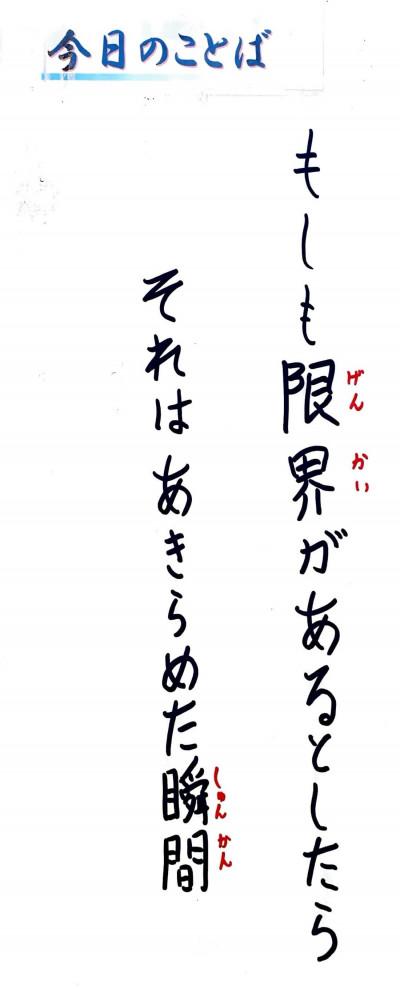 今日のことば
もしも限界があるとしたら
げん
かい
それはあきらめた瞬間
しゅん
かん